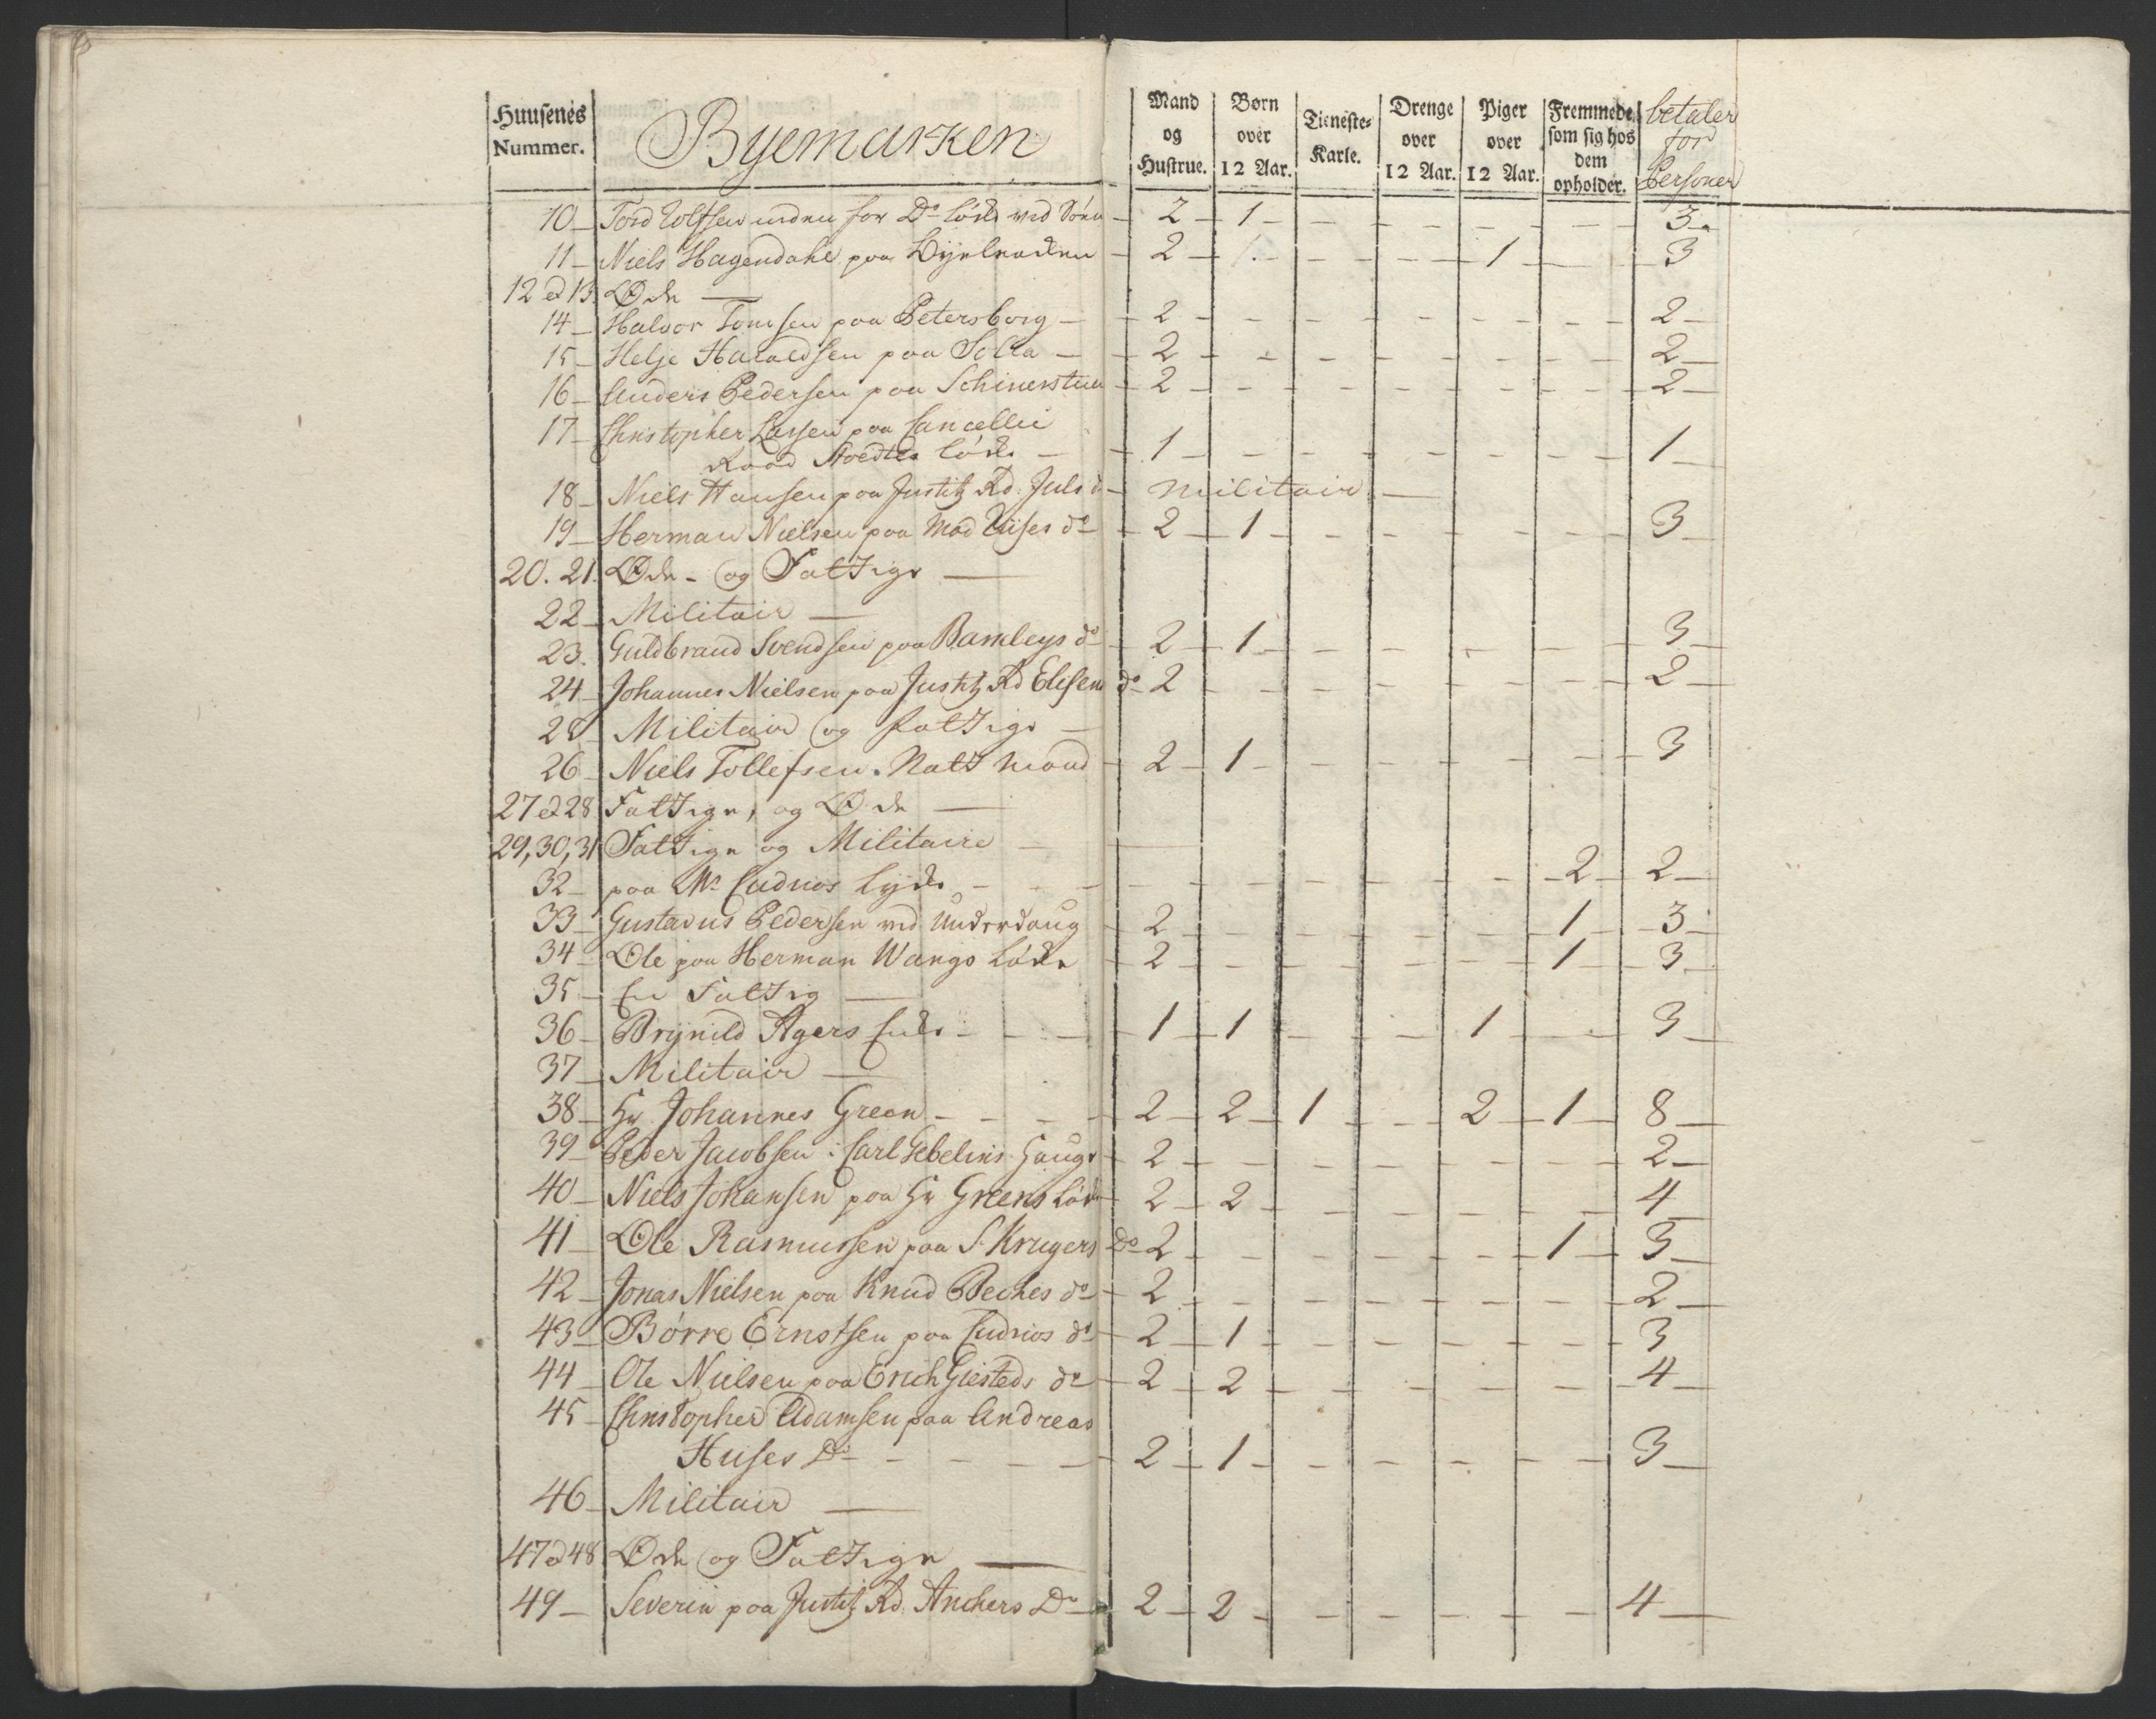 Huusenes Nummer. Byemarken Mand og Hustrue. Børn over 12 Aar. Tieneste-Karle. Drenge over 12 Aar. Piger over 12 Aar. Fremmede som sig hos dem opholder. betaler for Personer
10 - Tord Wolfsen neden for Do Løke ved - 2 - 1 - - - - - - 3 -
11 - Niels Hagendahl paa - 2 - 1 - - - - 1 - 3
12 et 13. Øde -
14 - Halvor Tomsen paa Petersborg - 2 - - - - - - 2 -
15 - Helje Haraldsen paa Solla - 2 - - - - - - 2 -
16 - Anders Pedersen paa Schinerstuen - 2 - - - - - - 2 -
17 - Christopher Larsen paa Cancellie
Raad Stoedtes Løke - 1 - - - - - - 1 -
18 - Niels Hansen paa Justitz Rd. Juls do - militair -
19 - Herman Nielsen paa Mad Huses do - 2 - 1 - - - - - 3 -
20. 21. Øde - og Fattige -
22 - Militair -
23. Guldbrand Svendsen paa Bamleys do - 2 - 1 - - - - - 3 -
24 - Johannes Nielsen paa Justitz Rd Eliesens do 2 - - - - - - 2 -
25 Militair og fattige -
26 - Niels Tollefsen. Natt mand - 2 - 1 - - - - - 3
27 et 28 Fattige, og Øde -
29, 30, 31 Fattige og Militaire -
32 - paa Mr Cudrios Lyke - - - - - - - 2 - 2 -
33 - Gustavus Pedersen ved Underhaug - 2 - - - - - 1 - 3 -
34 - Ole paa Herman Wangs Løke - 2 - - - - - 1 - 3 -
35 - En Fattig -
36 - Brynild Agers Enke - - - 1 - 1 - - - 1 - - 3 -
37 - Militair -
38 - Hr Johannes Green - - - - 2 - 2 - 1 - - 2 - 1 - 8 -
39 - Peder Jacobsen i Carl Gebelins Hauge - 2 - - - - - - 2 -
40 - Niels Johansen paa Hr Greens Løke - 2 - 2 - - - - - 4 -
41 - Ole Rasmussen paa S. Krugers Do 2 - - - - - 1 - 3 -
42 - Jonas Nielsen paa Knud Beches do - 2 - - - - - - 2 -
43 - Børre Ernstsen paa Cudrios do - 2 - 1 - - - - - 3
44 - Ole Nielsen paa Erich Giesteds do - 2 - 2 - - - - - 4 -
45 - Christopher Adamsen paa Andreas
Huses Do - - - - 2 - 1 - - - - - 3 -
46 - Militair -
47 et 48 Øde og Fattige -
49 - Severin paa Justitz Rd. Anchers Do - 2 - 2 - - - - - 4 -